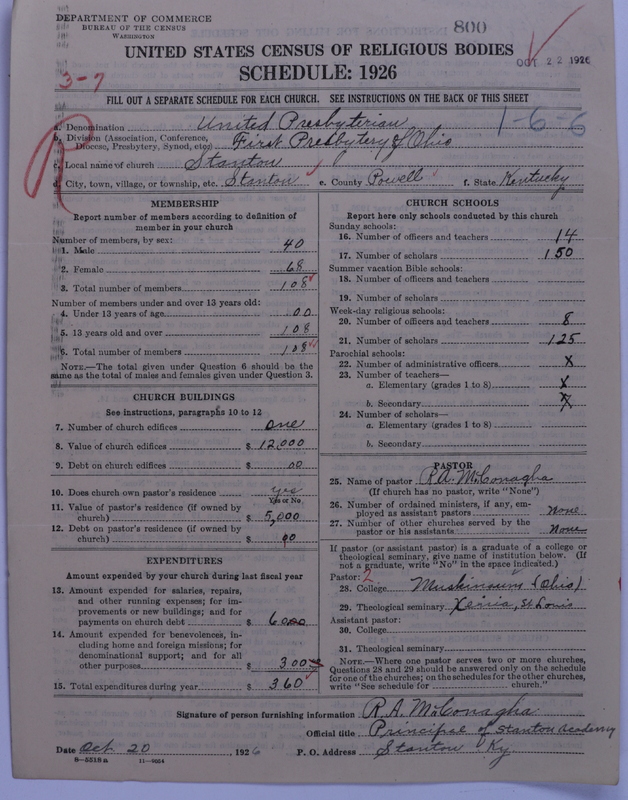 DEPARTMENT OF COMMERCE
BUREAU OF THE CENSUS
WASHINGTON
800
UNITED STATES CENSUS OF RELIGIOUS BODIES
OCT 22 1926
3-7
SCHEDULE: 1926
FILL OUT A SEPARATE SCHEDULE FOR EACH CHURCH. SEE INSTRUCTIONS ON THE BACK OF THIS SHEET
1-6-6
a. Denomination United Presbyterian
b. Division (Association, Conference, Diocese, Presbytery, Synod, etc.) First Presbytery of Ohio
c. Local name of church Stanton
d. City, town, village, or township, etc. Stanton e. County Powell f. State Kentucky
MEMBERSHIP
Report number of members according to definition of
member in your church
Number of members, by sex:
1. Male 40
2. Female 68
3. Total number of members 108
Number of members under and over 13 years old:
4. Under 13 years of age 00
5. 13 years old and over 108
6. Total number of members 108
NOTE.—The total given under Question 6 should be the
same as the total of males and females given under Question 3.
CHURCH BUILDINGS
See instructions, paragraphs 10 to 12
7. Number of church edifices one
8. Value of church edifices $ 12,000
9. Debt on church edifices $ 00
10. Does church own pastor's residence yes
Yes or No
11. Value of pastor's residence (if owned by
church) $ 5,000
12. Debt on pastor's residence (if owned by
church) $ 00
EXPENDITURES
Amount expended by your church during last fiscal year
13. Amount expended for salaries, repairs,
and other running expenses; for im-
provements or new buildings; and for
payments on church debt $ 60
14. Amount expended for benevolences, in-
cluding home and foreign missions; for
denominational support; and for all
other purposes $ 300
15. Total expenditures during year $ 360
CHURCH SCHOOLS
Report here only schools conducted by this church
Sunday schools:
16. Number of officers and teachers 14
17. Number of scholars 150
Summer vacation Bible schools:
18. Number of officers and teachers
19. Number of scholars
Week-day religious schools:
20. Number of officers and teachers 8
21. Number of scholars 125
Parochial schools:
22. Number of administrative officers X
23. Number of teachers—
a. Elementary (grades 1 to 8) X
b. Secondary X
24. Number of scholars—
a. Elementary (grades 1 to 8)
b. Secondary
PASTOR
25. Name of pastor R.A. McConagha
(If church has no pastor, write "None")
26. Number of ordained ministers, if any, em-
ployed as assistant pastors None
27. Number of other churches served by the
pastor or his assistants None
If pastor (or assistant pastor) is a graduate of a college or
theological seminary, give name of institution below. (If
not a graduate, write "No" in the space indicated.)
Pastor: 2
28. College Muskingum (Ohio)
29. Theological seminary Xenia, St. Louis
Assistant pastor:
30. College
31. Theological seminary
NOTE.—Where one pastor serves two or more churches,
Questions 28 and 29 should be answered only on the schedule
for one of the churches; on the schedules for the other churches,
write "See schedule for church."
Signature of person furnishing information R.A. McConagha
Official title Principal of Stanton Academy
Date Oct. 20 1926 P. O. Address Stanton Ky
8—5518a 11—9054